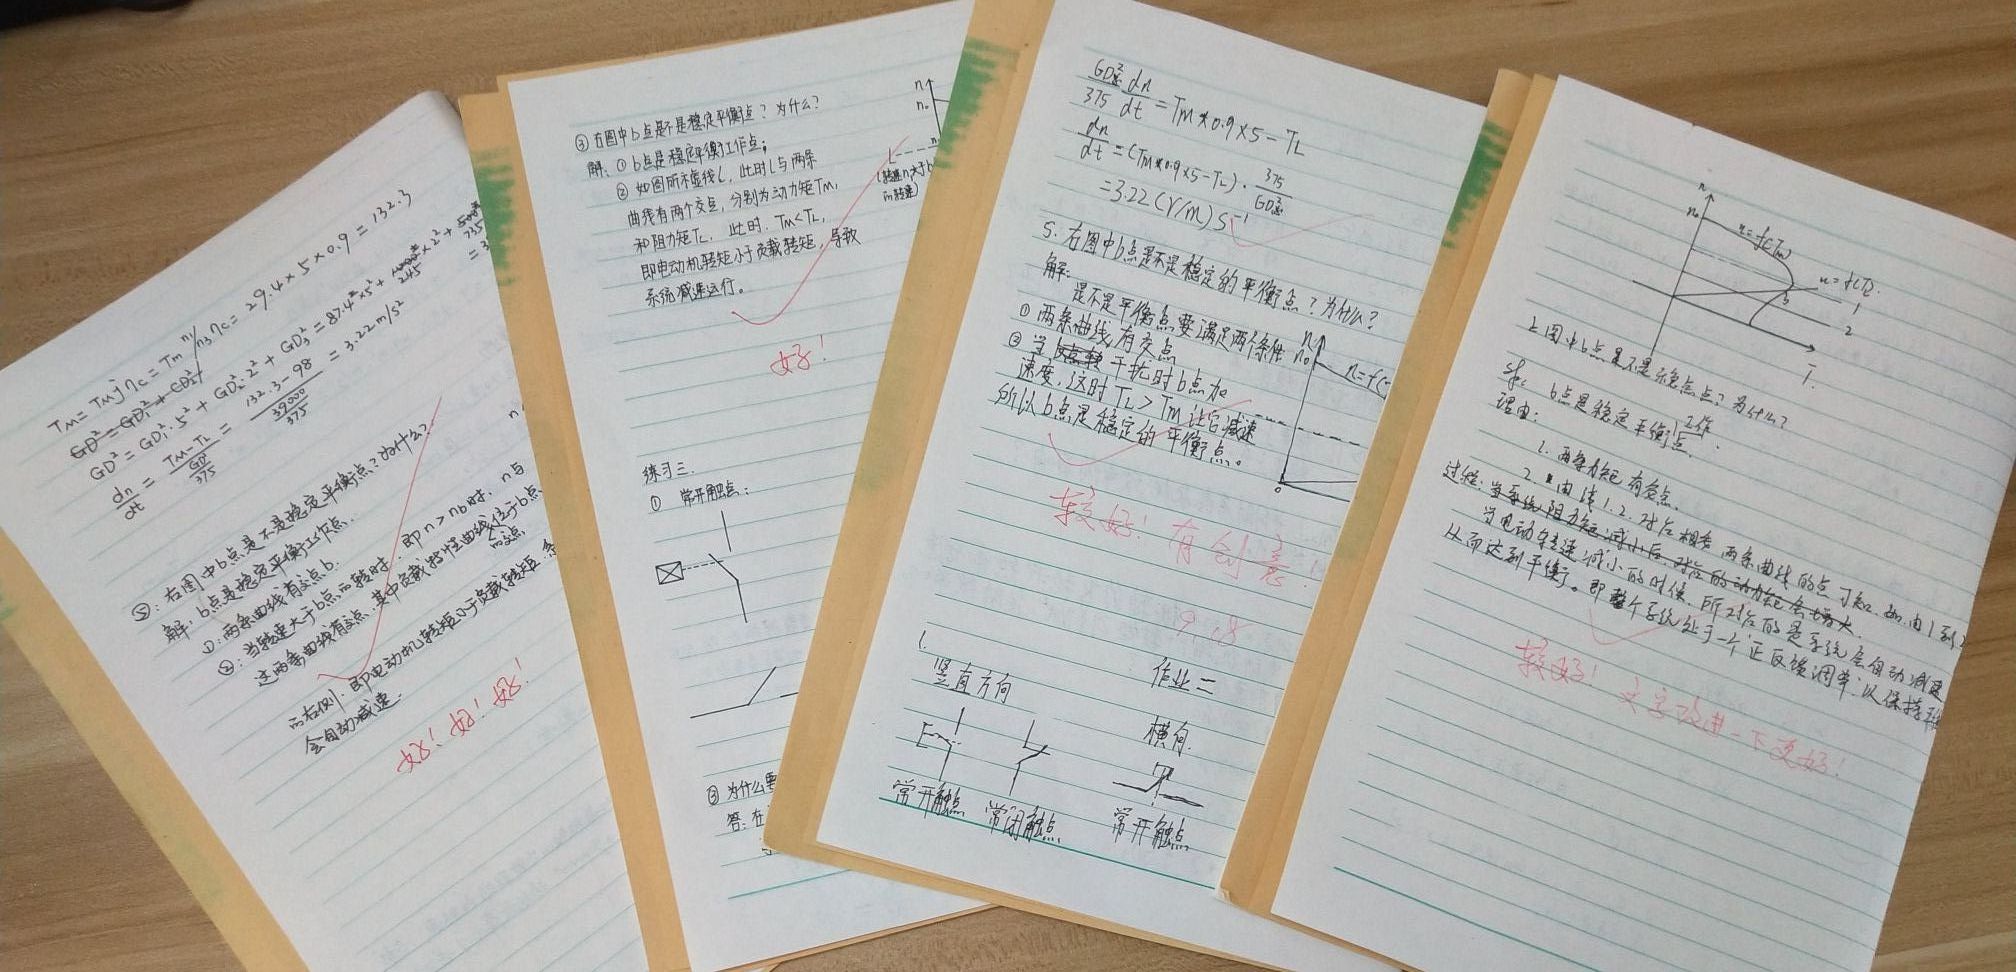 TM = TM j ηc = Tm n1/n3 ηc = 29.4×5×0.9 = 132.3
GD² = GD1²·5² + GD2²·2² + GD3² = 87.4
dn/dt = (TM-TL)/(GD²/375) = (132.3-98)/(39000/375) = 3.22 m/s²
⑤: 右图中b点是不是稳定平衡点?为什么?
解: b点是稳定平衡工作点.
①: 两条曲线有交点b.
②: 当转速大于b点的转时, 即n>nb时, n与
这两条曲线有交点, 其中负载特性曲线位于b点,
的交点
的右侧. 即电动机转矩小于负载转矩.
会自动减速.
好! 好! 好!
③ 右图中b点是不是稳定平衡点? 为什么?
解: ① b点是稳定平衡工作点;
② 如图所示虚线L, 此时L与两条
曲线有两个交点, 分别为动力矩TM,
和阻力矩TL, 此时, TM<TL,
即电动机转矩小于负载转矩, 导致
系统减速运行。
n
n₀
L
(转速n大于b
的转速)
好!
练习三.
① 常开触点:
③ 为什么要
答: 在
GD²/375 dn/dt = TM×0.9×5-TL
dn/dt = (TM×0.9×5-TL)·375/GD²
=3.22(r/m)S⁻¹
5. 右图中b点是不是稳定的平衡点? 为什么?
解:
是不是平衡点要满足两个条件
① 两条曲线有交点
② 当 干扰时b点加
速度, 这时TL>TM 让它减速
所以b点是稳定的平衡点。
n
n₀
n=f(
0
较好! 有创意!
9.18
1.
竖直方向
作业二
横向.
常开触点
常闭触点
常开触点
n
n₀
n=f(Tm)
n=f(TL)
b
1
2
T.
上图中b点是不是稳态点? 为什么?
b点是稳定平衡工作点.
理由:
1. 两条力矩有交点.
2. 由线1.2.对应相交 两条曲线的点可知. 如由1到2
过程: 当系统阻力矩减小后, 对应的动力矩会增大.
当电动转速减小的时候. 所对应的是系统会自动减速
从而达到平衡了。即整个系统处于一个正反馈调节, 以保持
较好! 文字改进一下更好!